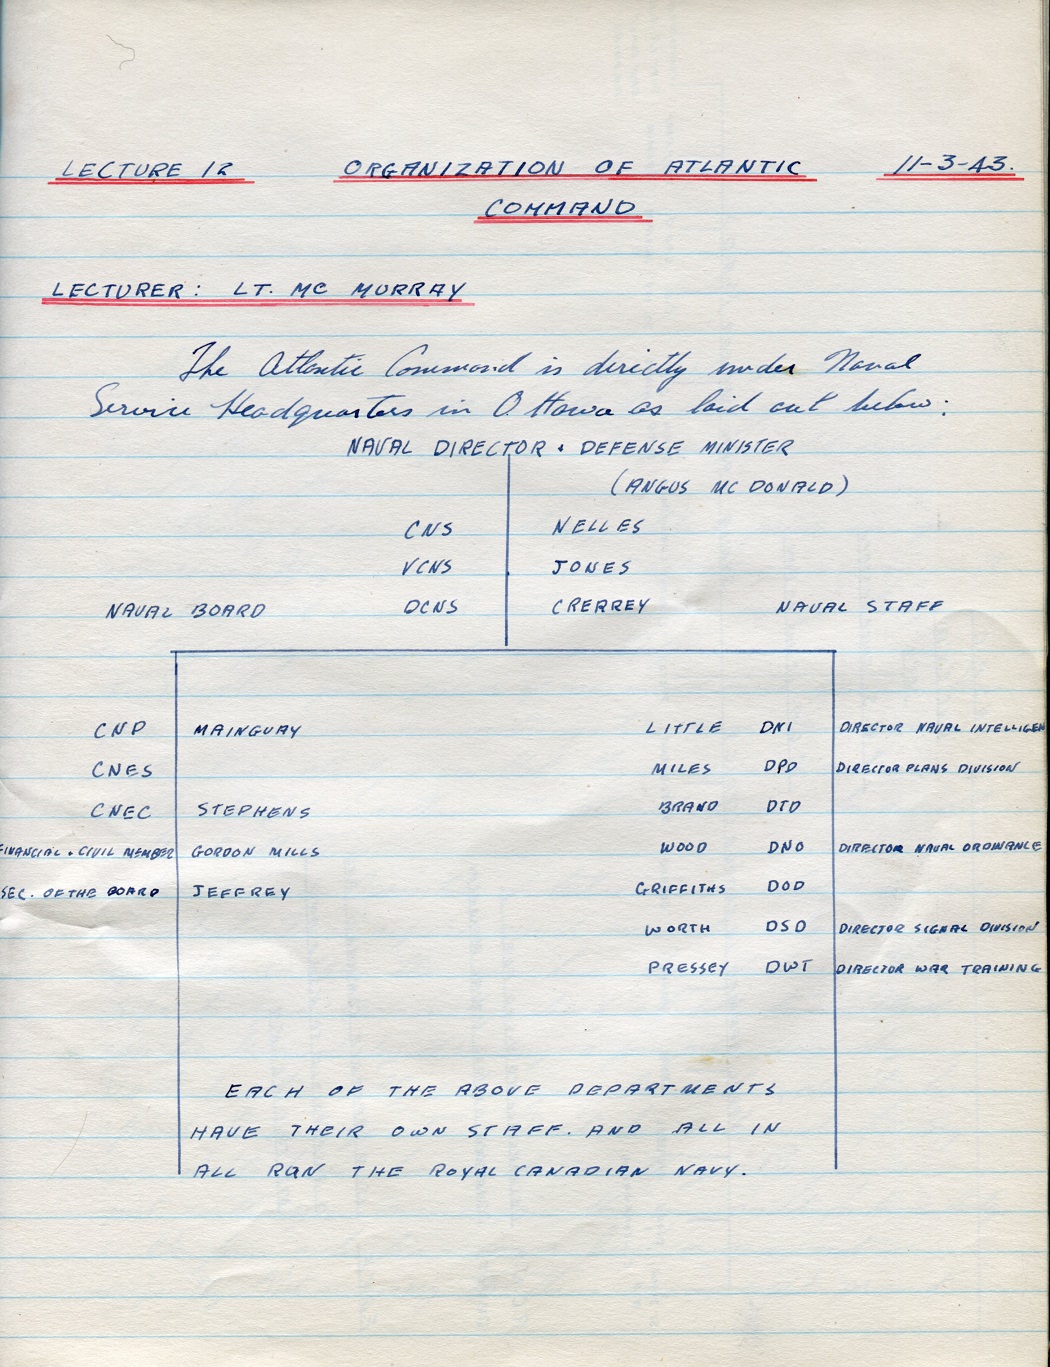 LECTURE 12 ORGANIZATION OF ATLANTIC 11-3-43.
COMMAND
LECTURER: LT. MC MURRAY
The Atlantic Command is directly under Naval
Service Headquarters in Ottawa as laid out below:
NAVAL DIRECTOR + DEFENSE MINISTER
(ANGUS MC DONALD)
CNS NELLES
VCNS JONES
NAVAL BOARD DCNS CRERREY NAVAL STAFF
CNP MAINGUAY LITTLE DNI DIRECTOR NAVAL INTELLIGEN
CNES MILES DPD DIRECTOR PLANS DIVISION
CNEC STEPHENS BRAND DTD
FINANCIAL + CIVIL MEMBER GORDON MILLS WOOD DNO DIRECTOR NAVAL ORDNANCE
SEC. OF THE BOARD JEFFREY GRIFFITHS DOD
WORTH DSD DIRECTOR SIGNAL DIVISION
PRESSEY DWT DIRECTOR WAR TRAINING
EACH OF THE ABOVE DEPARTMENTS
HAVE THEIR OWN STAFF. AND ALL IN
ALL RUN THE ROYAL CANADIAN NAVY.